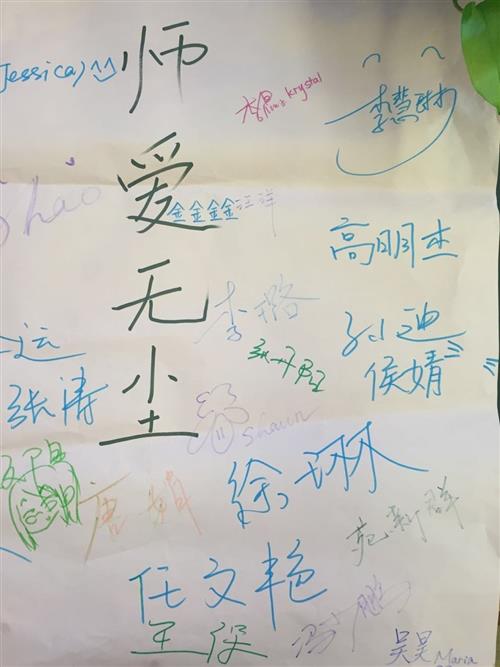 Jessica)
师
爱
无
尘
krystal
李慧
Shao
金金金金汪洋
高明杰
李璐
孙迪
侯婧
运
张涛
shaun
徐琳
唐娟
任文艳
王保
冯鹏
吴昊
Maria